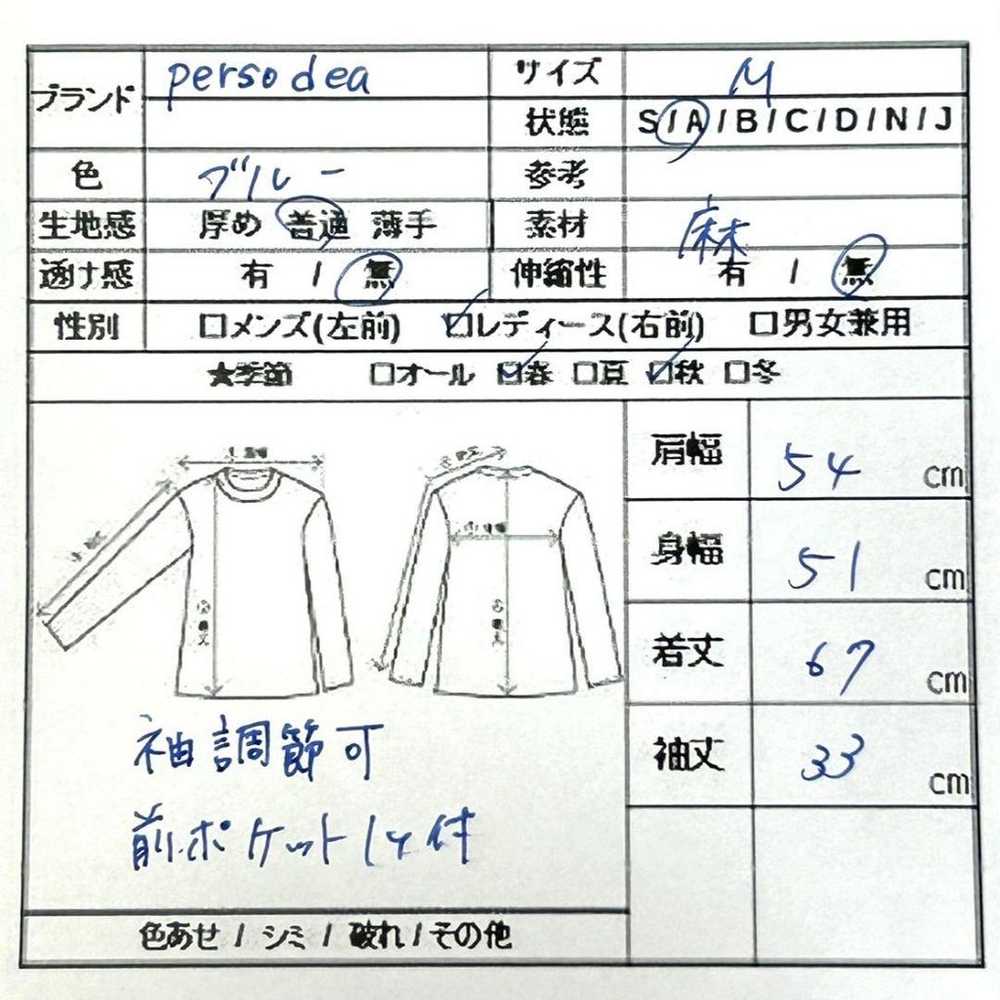 ブランド persodea サイズ M
状態 S/A/B/C/D/N/J
色 ブルー 参考
生地感 厚め 普通 薄手 素材 麻
透け感 有 / 無 伸縮性 有 / 無
性別 □メンズ(左前) ☑レディース(右前) □男女兼用
★季節 □オール ☑春 □夏 ☑秋 □冬
肩幅 54 cm
身幅 51 cm
着丈 67 cm
袖丈 33 cm
袖調節可
前ポケット1ケ付
色あせ / シミ / 破れ / その他